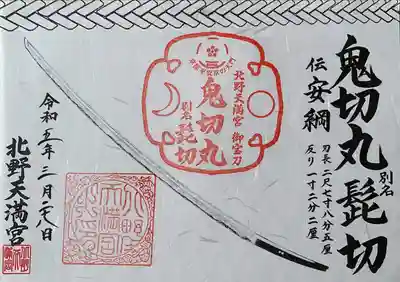 鬼切丸 別名 髭切
伝 安綱
刃長 二尺七寸八分五厘
反り 一寸二分二厘
北野天満宮 御宝刀
鬼切丸
別名 髭切
令和五年 三月二十八日
北野天満宮